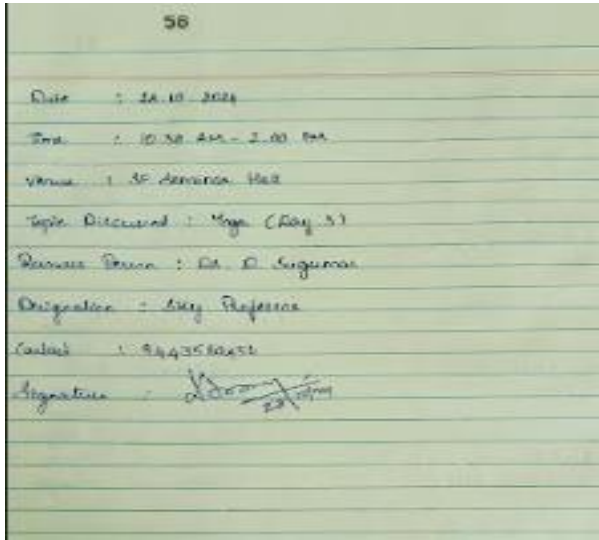 56
Date : 28.10.2024
Time : 10.30 AM - 2.00 PM
Venue : SF Seminar Hall
Topic Discussed : Yoga (Day 3)
Resource Person : Dr. D. Sugumar
Designation : Professor
Contact :
Signature :